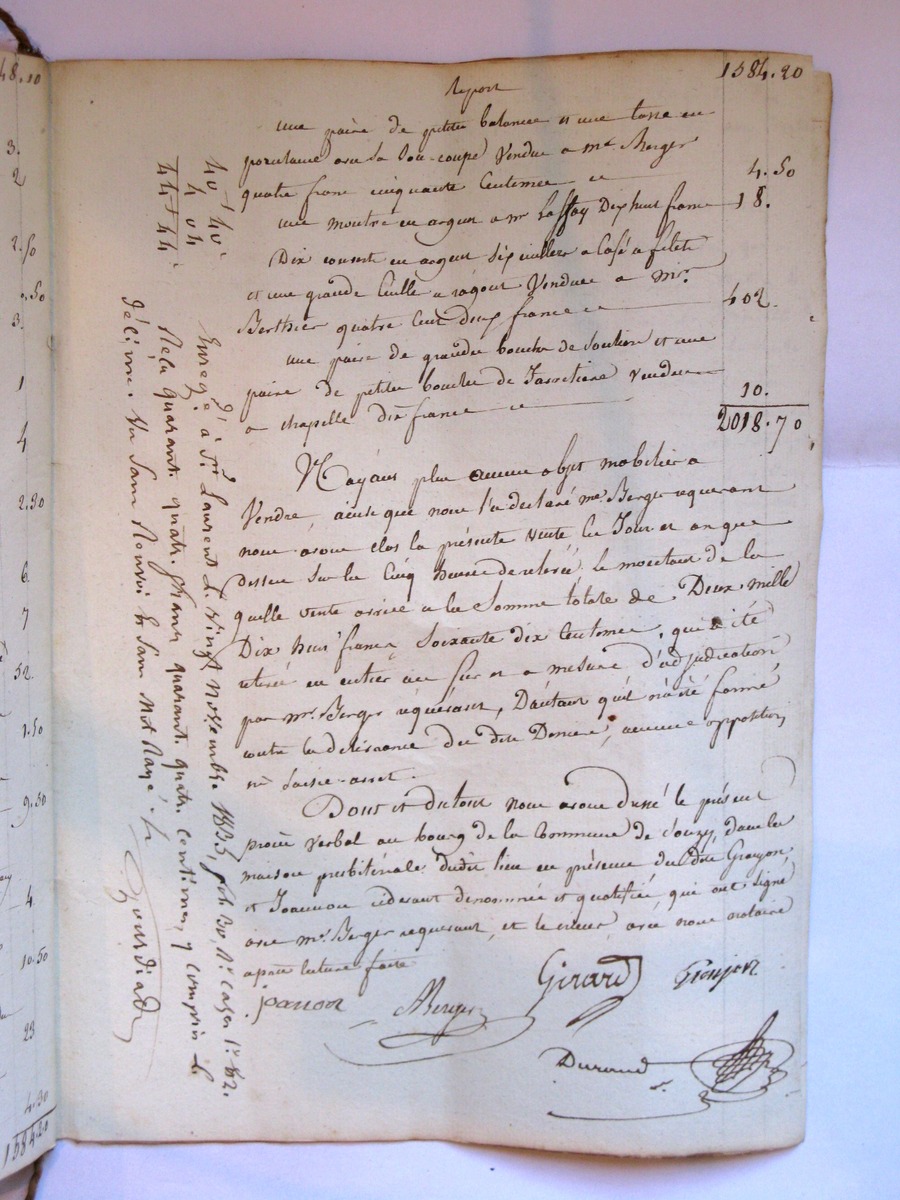 Report 1584.20
une paire de petites balances et une tasse en
porcelaine avec sa sou-coupe vendue a mr. Berger
quatre francs cinquante centimes 4.50
une montre en argent a mr Laffay Dix huit francs 18.
Dix couverts en argent six cuilleres a café a filets
et une grande cuillere a ragout vendues a mr.
Berthier quatre cent deux francs 402.
une paire de grandes boucles de souliers et une
paire de petites boucles de Jarretieres vendues
a chapelle dix francs 10.
2018.70
N'ayant plus aucuns objets mobiliers a
vendre, ainsi que nous l'a declaré mr Berger requerant
nous avons clos la présente vente les Jour et an que
dessus sur les cinq heures de relevée, le montant de la
quelle vente arrive a la somme totale de Deux mille
Dix huit francs soixante dix centimes, qui a été
retirée en entier au fur et a mesure d'adjudication
par mr. Berger requérant, D'autant qu'il n'a été formé
contre la délivrance des dits Deniers, aucune opposition
ni saisie-arret.
Dont et du tout nous avons dressé le présent
procès verbal au bourg de la commune de Souzy, dans la
maison presbitérale dudit lieu en présence des dits Goujon
et Joannon cidevant dénommés et qualifiés, qui ont signé
avec mr. Berger requerant, et le crieur, avec nous notaire
après lecture faite
Girard Goujon
Berger
Durand
40 - 40
4 04
44 - 44
Enreg. à St. Laurent le vingt Novembre 1833, fol. 30, Vo. cases 1 et 2.
Reçu quarante quatre francs quarante quatre centimes, y compris le
décime. Un sans Renvoi et sans mot Rayé.